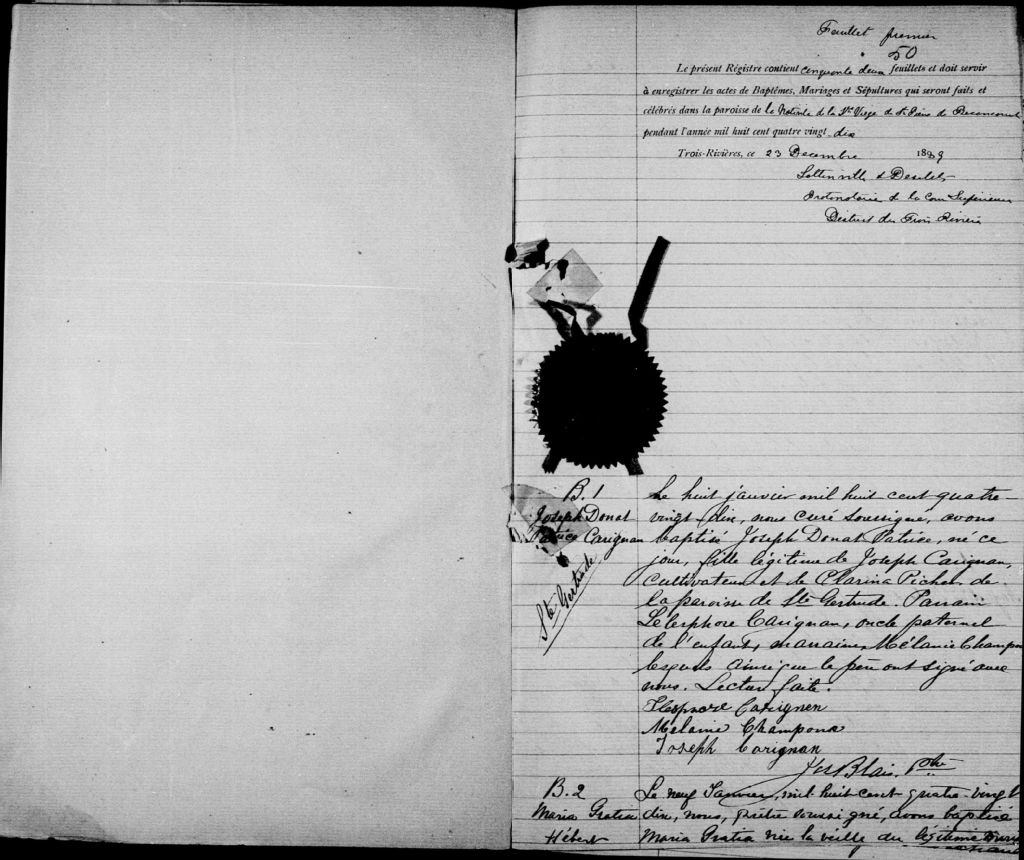 Feuillet premier
50
Le présent Régistre contient cinquante deux feuillets et doit servir
à enregistrer les actes de Baptêmes, Mariages et Sépultures qui seront faits et
célébrés dans la paroisse de la Nativité de la Ste Vierge de Bécancour
pendant l'année mil huit cent quatre vingt dix
Trois-Rivières, ce 23 Decembre 1889
& Desilets
Protonotaire de la Cour Supérieure
District des Trois Rivières
B. 1
Joseph Donat
Patrice Carignan
Ste Gertrude
Le huit janvier mil huit cent quatre-
vingt-dix, nous curé soussigné, avons
baptisé Joseph Donat Patrice, né ce
jour, fils légitime de Joseph Carignan,
cultivateur et de Clarina Picher de
la paroisse de Ste Gertrude. Parrain
Télesphore Carignan, oncle paternel
de l'enfant, marraine Mélanie Champou
lesquels ainsi que le père ont signé avec
nous. Lecture faite.
Carignen
Melanie Champoux
Joseph Carignan
Jos Blais, Ptre
B. 2
Maria Gratia
Hébert
Le neuf Janvier, mil huit cent quatre-vingt
dix, nous, prêtre soussigné, avons baptisé
Maria Gratia née la veille du légitime mariage